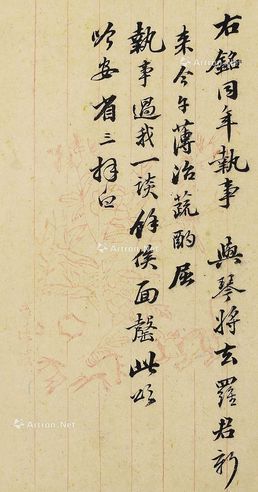 右銘同年執事 與琴將去羅君新
来今午薄治蔬酌屈
執事過我一談餘俟面罄此頌
吟安 省三拜白
Artron.Net
Artron.Net
Artron.Net